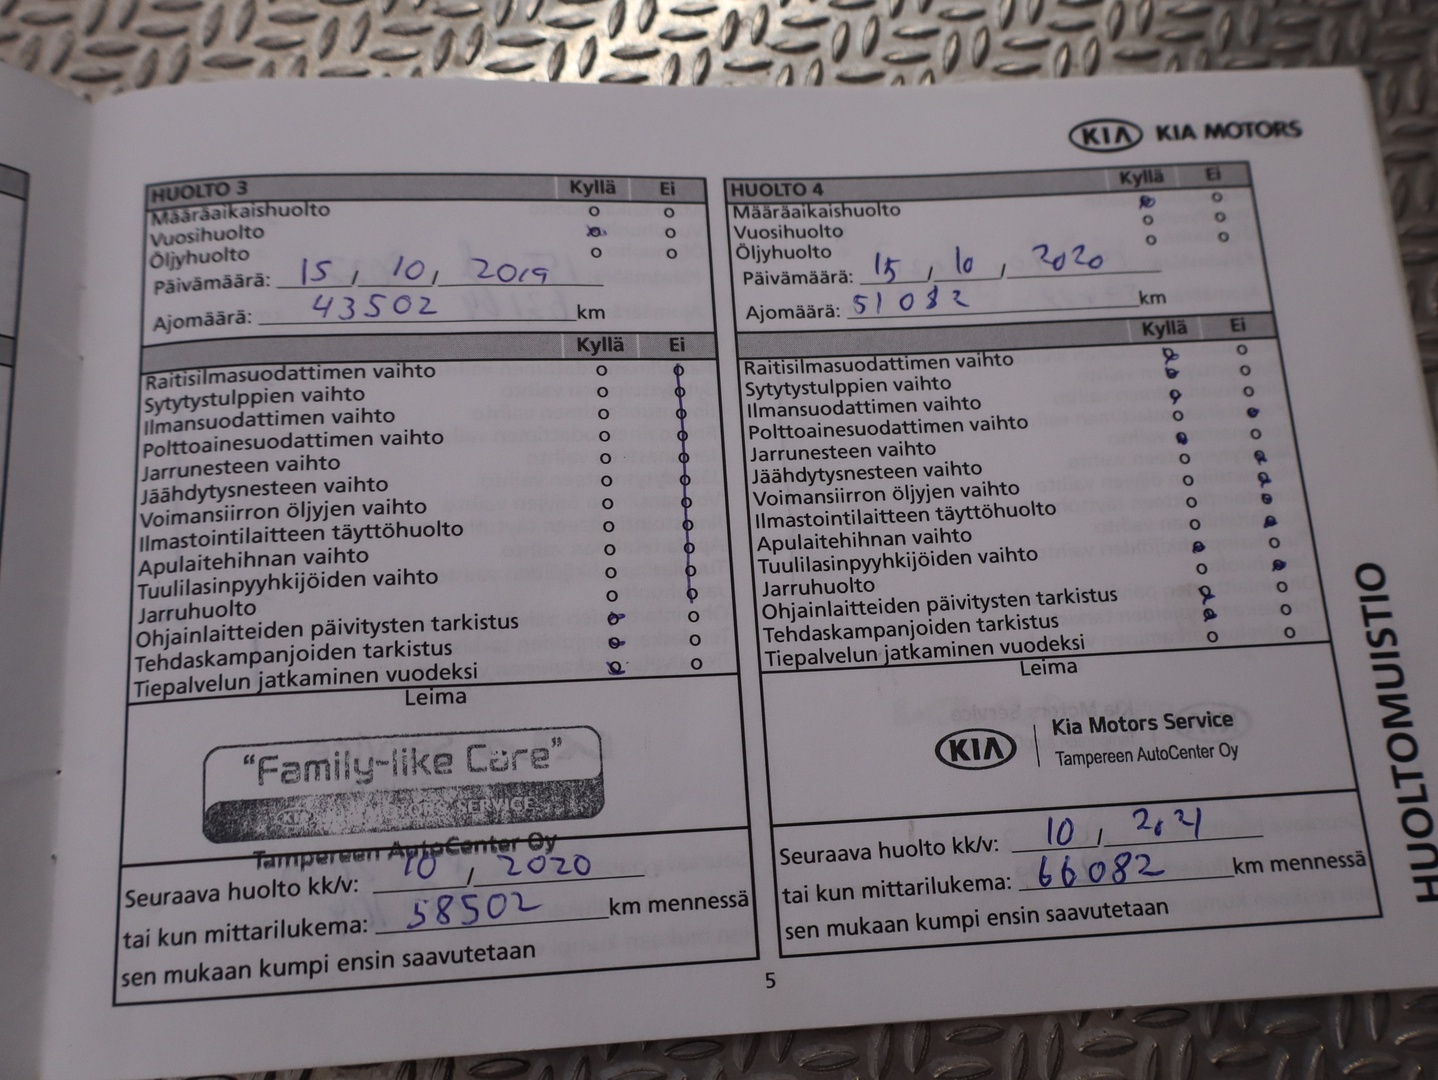 KIA KIA MOTORS
HUOLTO 3 Kyllä Ei
Määräaikaishuolto
Vuosihuolto
Öljyhuolto
Päivämäärä: 15, 10, 2019
Ajomäärä: 43502 km
Kyllä Ei
Raitisilmasuodattimen vaihto
Sytytystulppien vaihto
Ilmansuodattimen vaihto
Polttoainesuodattimen vaihto
Jarrunesteen vaihto
Jäähdytysnesteen vaihto
Voimansiirron öljyjen vaihto
Ilmastointilaitteen täyttöhuolto
Apulaitehihnan vaihto
Tuulilasinpyyhkijöiden vaihto
Jarruhuolto
Ohjainlaitteiden päivitysten tarkistus
Tehdaskampanjoiden tarkistus
Tiepalvelun jatkaminen vuodeksi
Leima
"Family-like Care"
KIA MOTORS SERVICE
Tampereen AutoCenter Oy
Seuraava huolto kk/v: 10, 2020
tai kun mittarilukema: 58502 km mennessä
sen mukaan kumpi ensin saavutetaan
HUOLTO 4 Kyllä Ei
Määräaikaishuolto
Vuosihuolto
Öljyhuolto
Päivämäärä: 15, 10, 2020
Ajomäärä: 51082 km
Kyllä Ei
Raitisilmasuodattimen vaihto
Sytytystulppien vaihto
Ilmansuodattimen vaihto
Polttoainesuodattimen vaihto
Jarrunesteen vaihto
Jäähdytysnesteen vaihto
Voimansiirron öljyjen vaihto
Ilmastointilaitteen täyttöhuolto
Apulaitehihnan vaihto
Tuulilasinpyyhkijöiden vaihto
Jarruhuolto
Ohjainlaitteiden päivitysten tarkistus
Tehdaskampanjoiden tarkistus
Tiepalvelun jatkaminen vuodeksi
Leima
KIA Kia Motors Service
Tampereen AutoCenter Oy
Seuraava huolto kk/v: 10, 2021
tai kun mittarilukema: 66082 km mennessä
sen mukaan kumpi ensin saavutetaan
HUOLTOMUISTIO
5